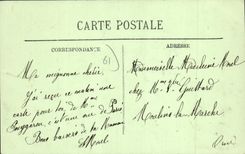 CARTE POSTALE
CORRESPONDANCE
ADRESSE
61
Ma mignonne chérie,
J'ai reçu ce matin une
carte pour toi de Mme
c'est une vue de Paris
Bons baisers de ta Maman
Mademoiselle Madeleine
chez Mme Vve Guillard
Moulins la Marche
Orne